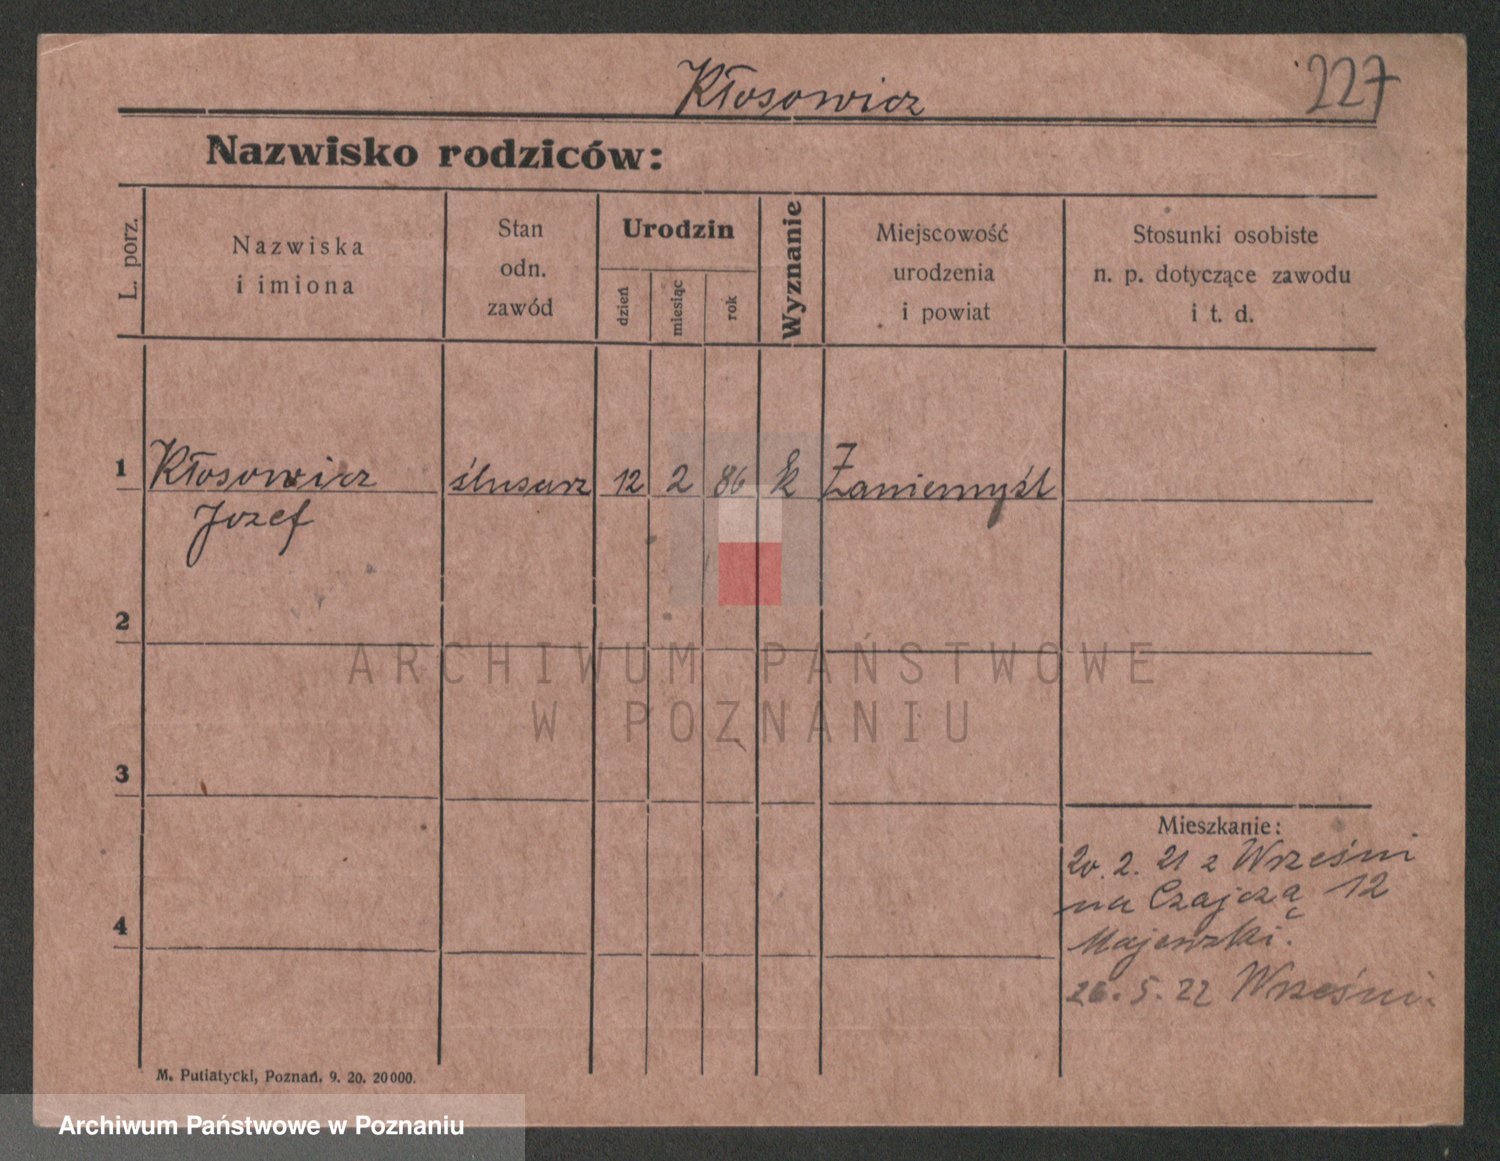 Kłosowicz
227
Nazwisko rodziców:
L. porz.
Nazwiska
i imiona
Stan
odn.
zawód
Urodzin
dzień
miesiąc
rok
Wyznanie
Miejscowość
urodzenia
i powiat
Stosunki osobiste
n. p. dotyczące zawodu
i t. d.
1 Kłosowicz ślusarz 12 2 86 k Zaniemyśl
Jozef
2
ARCHIWUM PAŃSTWOWE
W POZNANIU
3
Mieszkanie:
20. 2. 21 z Wrześni
na Czajczą 12
Majewski.
4
26. 5. 22 Wrześni.
M. Putiatycki, Poznań. 9. 20. 20000.
Archiwum Państwowe w Poznaniu